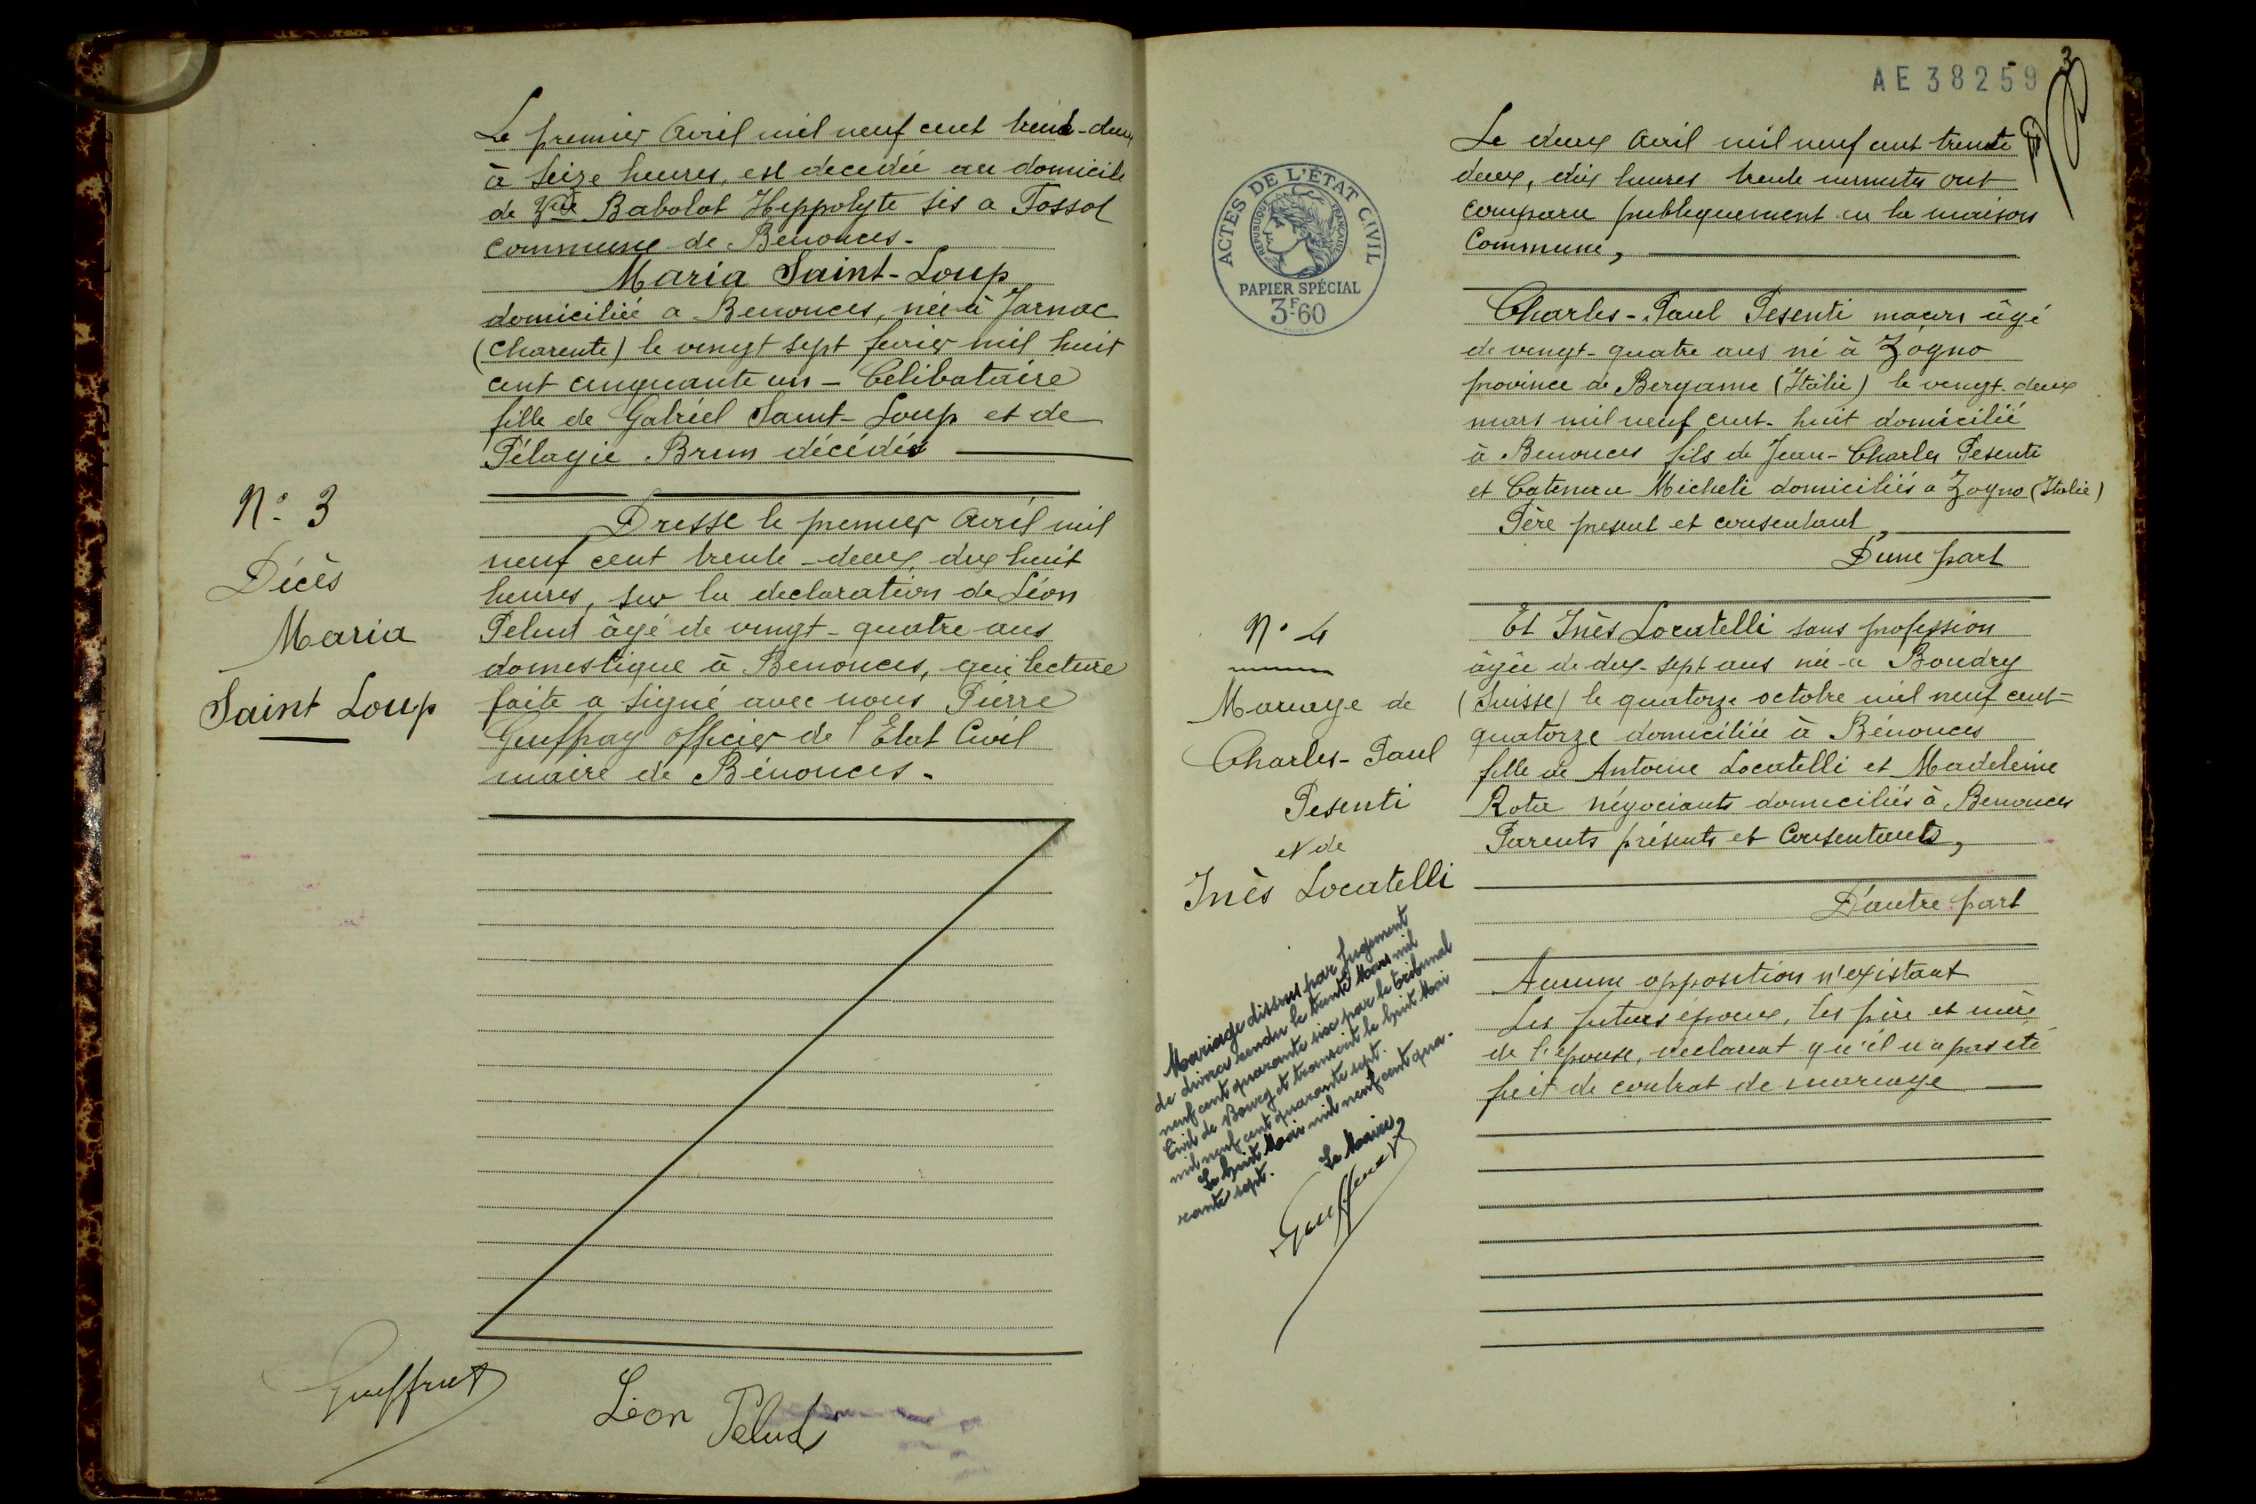 Le premier Avril mil neuf cent trente-deux
à seize heures, est décédée au domicile
de Vve Babolat Hippolyte sis a Fossol
commune de Benonces.
Maria Saint-Loup
domiciliée a Benonces, née à Jarnac
(Charente) le vingt sept fevrier mil huit
cent cinquante un - Célibataire
fille de Gabriel Saint-Loup et de
Pélagie Brun décédés
N° 3
Décès
Maria
Saint Loup
Dressé le premier Avril mil
neuf cent trente-deux, dix huit
heures, sur la declaration de Léon
Pelud âgé de vingt-quatre ans
domestique à Benonces, qui lecture
faite a signé avec nous Pierre
Geuffray officier de l'Etat Civil
maire de Bénonces.
Léon Pelud
AE 38259
3
ACTES DE L'ÉTAT CIVIL
RÉPUBLIQUE FRANÇAISE
PAPIER SPÉCIAL
3F60
Le deux Avril mil neuf cent trente
deux, dix heures trente minutes ont
comparu publiquement en la maison
Commune,
Charles-Paul Pesenti maçon âgé
de vingt-quatre ans né à Zogno
province de Bergame (Italie) le vingt-deux
mars mil neuf cent-huit domicilié
à Benonces fils de Jean-Charles Pesenti
et Caterina Micheli domiciliés a Zogno (Italie)
Père present et consentant,
D'une part
N° 4
Mariage de
Charles-Paul
Pesenti
et de
Inès Locatelli
Et Inès Locatelli sans profession
âgée de dix-sept ans née a Boudry
(Suisse) le quatorze octobre mil neuf cent-
quatorze domiciliée à Bénonces
fille de Antoine Locatelli et Madeleine
Rota négociants domiciliés à Benonces
Parents présents et Consentants,
D'autre part
Aucune opposition n'existant
Les futurs époux, les père et mère
de l'épouse, declarent qu'il n'a pas été
fait de contrat de mariage
Mariage dissous par jugement
de divorce rendu le trente Mars mil
neuf cent quarante six par le tribunal
Civil de Bourg et transcrit le huit Mai
mil neuf cent quarante sept.
Le huit Mai mil neuf cent qua-
rante sept.
Le Maire,